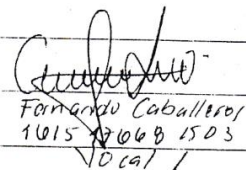 Fernando Caballeros
1615 17668 1503
Vocal I